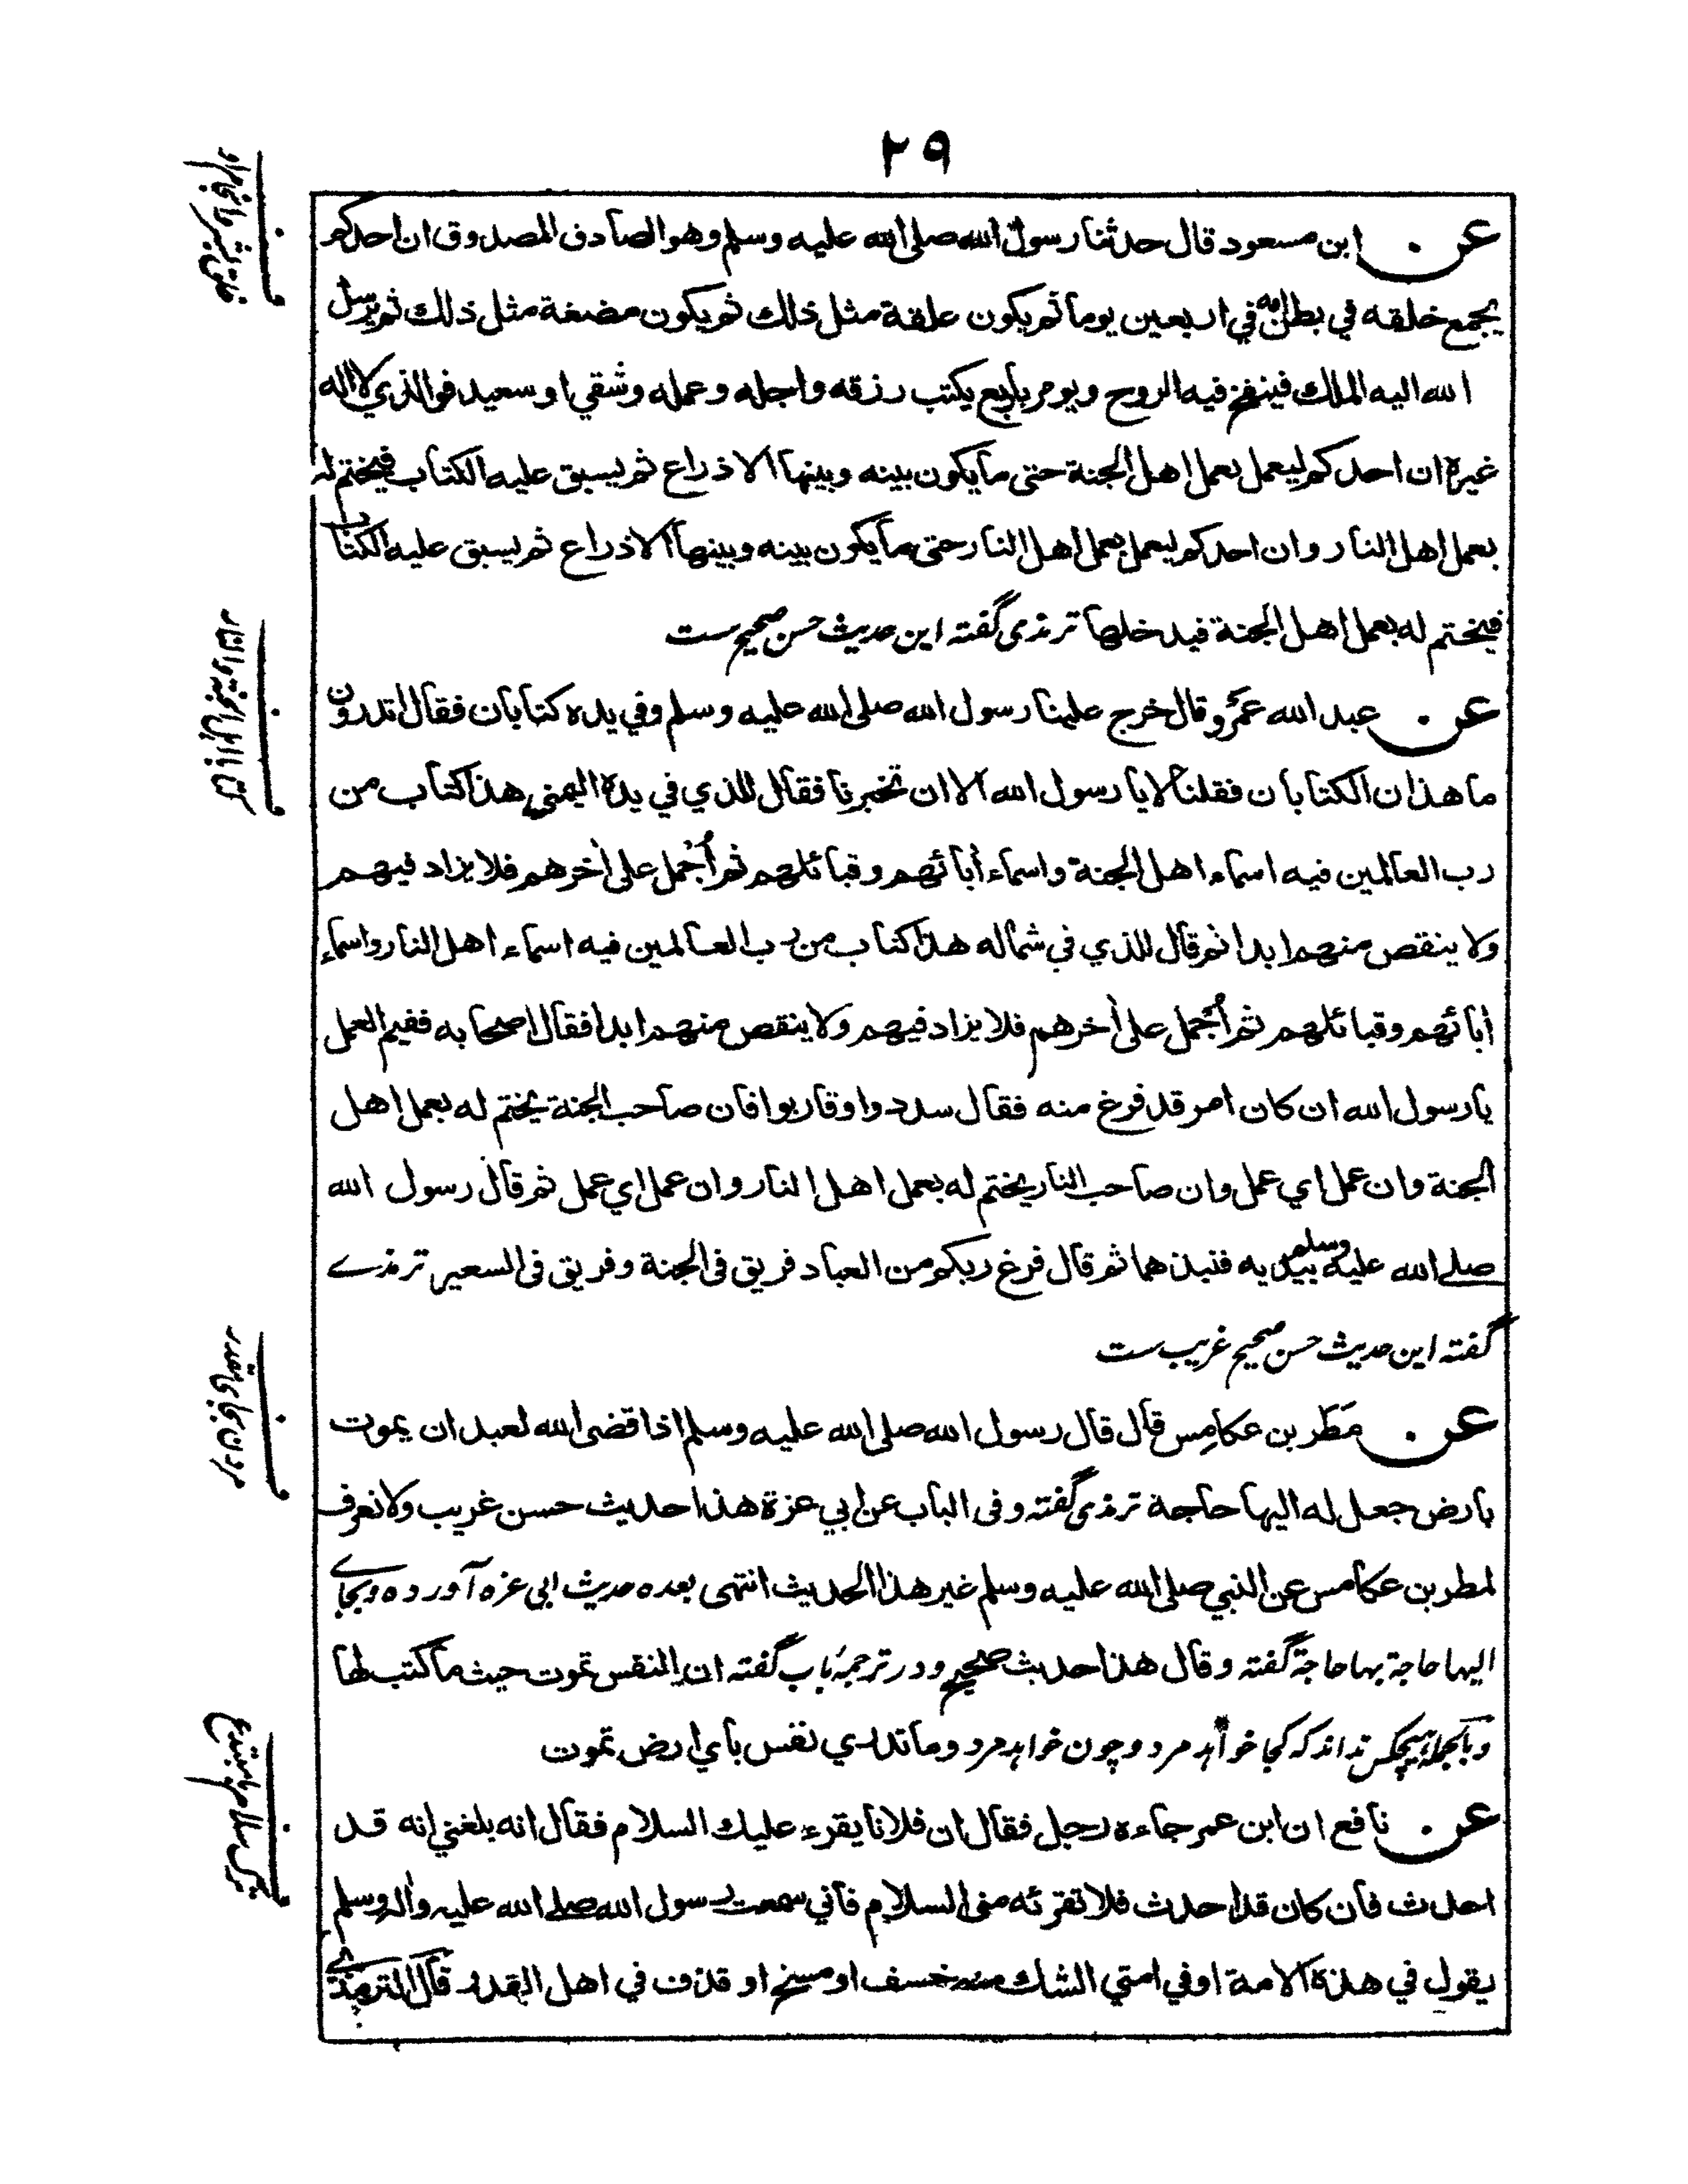 ٢٩
عن ابن مسعود قال حدثنا رسول الله صلى الله عليه وسلم وهو الصادق المصدوق ان احدكم
يجمع خلقه في بطن امه في اربعين يوما ثم يكون علقة مثل ذلك ثم يكون مضغة مثل ذلك ثم يرسل
الله اليه الملك فينفخ فيه الروح ويومر باربع يكتب رزقه واجله وعمله وشقي او سعيد فوالذي لا اله
غيره ان احدكم ليعمل بعمل اهل الجنة حتى ما يكون بينه وبينها الا ذراع ثم يسبق عليه الكتاب فيختم له
بعمل اهل النار وان احدكم ليعمل بعمل اهل النار حتى ما يكون بينه وبينها الا ذراع ثم يسبق عليه الكتاب
فيختم له بعمل اهل الجنة فيدخلها ترمذی گفته این حدیث حسن صحیح ست
عن عبد الله عمرو قال خرج علينا رسول الله صلى الله عليه وسلم وفي يده كتابان فقال اتدرون
ما هذان الكتابان فقلنا لا يا رسول الله الا ان تخبرنا فقال للذي في يده اليمنى هذا كتاب من
رب العالمين فيه اسماء اهل الجنة واسماء أبائهم وقبائلهم ثم أُجمل على أخرهم فلا يزاد فيهم
ولا ينقص منهم ابدا ثم قال للذي في شماله هذا كتاب من رب العالمين فيه اسماء اهل النار واسماء
أبائهم وقبائلهم ثم أُجمل على أخرهم فلا يزاد فيهم ولا ينقص منهم ابدا فقال اصحابه ففيم العمل
يا رسول الله ان كان امر قد فرغ منه فقال سددوا وقاربوا فان صاحب الجنة يختم له بعمل اهل
الجنة وان عمل اي عمل وان صاحب النار يختم له بعمل اهل النار وان عمل اي عمل ثم قال رسول الله
صلے الله عليه وسلم بيديه فنبذهما ثم قال فرغ ربكم من العباد فريق فى الجنة وفريق فى السعير ترمذے
گفته این حدیث حسن صحیح غریب ست
عن مَطَر بن عكامِس قال قال رسول الله صلى الله عليه وسلم اذا قضى الله لعبد ان يموت
بارض جعل له اليها حاجة ترمذی گفته و فى الباب عن ابي عزة هذا حديث حسن غريب ولا نعرف
لمطر بن عكامس عن النبي صلى الله عليه وسلم غير هذا الحديث انتهى بعده حدیث ابی عزه آورده و بجاے
اليها حاجة بها حاجة گفته وقال هذا حديث صحيح و در ترجمهٔ باب گفته ان النفس تموت حيث ما كتب لها
و بالجمله هیچکس نداند که کجا خواهد مرد و چون خواهد مرد وما تدري نفس باي ارض تموت
عن نافع ان ابن عمر جاءه رجل فقال ان فلانا يقرء عليك السلام فقال انه بلغني انه قد
احدث فان كان قد احدث فلا تقرئه منى السلام فاني سمعت رسول الله صلے الله عليه واله وسلم
يقول في هذه الامة او في امتي الشك منه خسف او مسخ او قذف في اهل القدر قال الترمذي